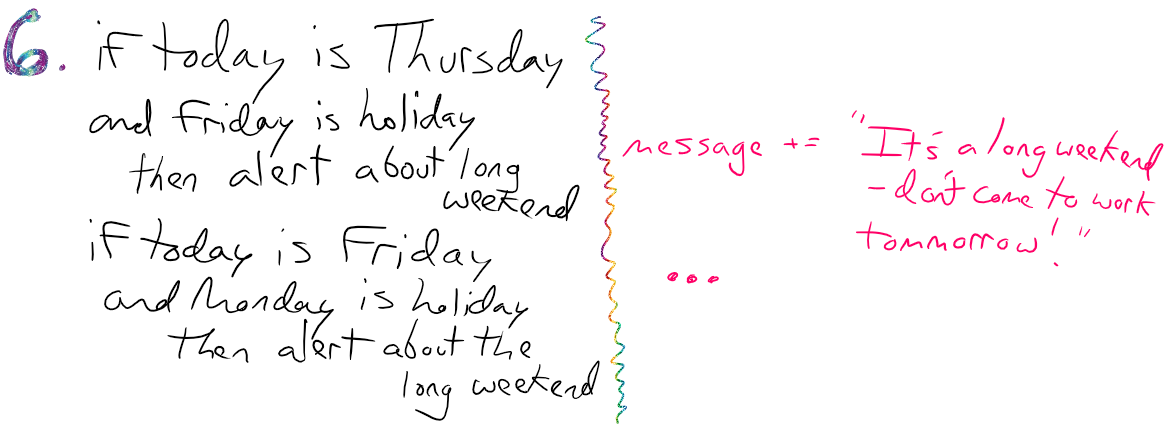 6. if today is Thursday
and Friday is holiday
then alert about long
weekend
if today is Friday
and Monday is holiday
then alert about the
long weekend
message += "It's a long weekend
- don't come to work
tommorrow!"
...